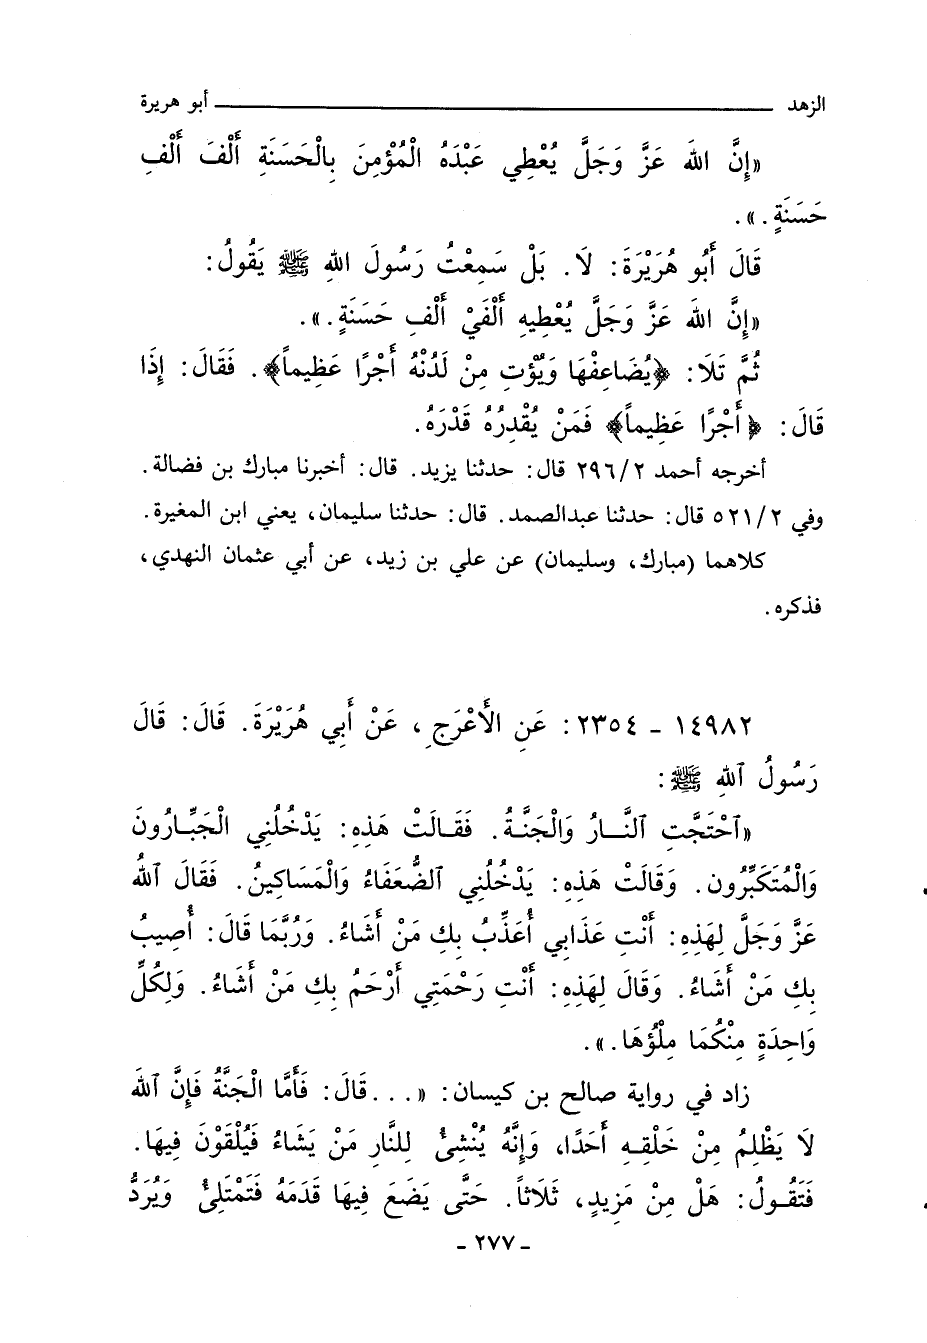 الزهد ـــــــــــــــــــــــــــــــــ أبو هريرة
«إِنَّ اللهَ عَزَّ وَجَلَّ يُعْطِي عَبْدَهُ الْمُؤْمِنَ بِالْحَسَنَةِ أَلْفَ أَلْفِ
حَسَنَةٍ.».
قَالَ أَبُو هُرَيْرَةَ: لَا. بَلْ سَمِعْتُ رَسُولَ اللهِ ﷺ يَقُولُ:
«إِنَّ اللهَ عَزَّ وَجَلَّ يُعْطِيهِ أَلْفَيْ أَلْفِ حَسَنَةٍ.».
ثُمَّ تَلَا: ﴿يُضَاعِفْهَا وَيُؤْتِ مِنْ لَدُنْهُ أَجْرًا عَظِيماً﴾. فَقَالَ: إِذَا
قَالَ: ﴿أَجْرًا عَظِيماً﴾ فَمَنْ يُقْدِرُهُ قَدْرَهُ.
أخرجه أحمد ٢/٢٩٦ قال: حدثنا يزيد. قال: أخبرنا مبارك بن فضالة.
وفي ٢/٥٢١ قال: حدثنا عبدالصمد. قال: حدثنا سليمان، يعني ابن المغيرة.
كلاهما (مبارك، وسليمان) عن علي بن زيد، عن أبي عثمان النهدي،
فذكره.
١٤٩٨٢ - ٢٣٥٤: عَنِ الأَعْرَجِ، عَنْ أَبِي هُرَيْرَةَ. قَالَ: قَالَ
رَسُولُ ٱللهِ ﷺ:
«ٱحْتَجَّتِ ٱلنَّـارُ وَالْجَنَّةُ. فَقَالَتْ هَذِهِ: يَدْخُلُنِي الْجَبَّارُونَ
وَالْمُتَكَبِّرُونَ. وَقَالَتْ هَذِهِ: يَدْخُلُنِي ٱلضُّعَفَاءُ وَالْمَسَاكِينُ. فَقَالَ ٱللهُ
عَزَّ وَجَلَّ لِهَذِهِ: أَنْتِ عَذَابِي أُعَذِّبُ بِكِ مَنْ أَشَاءُ. وَرُبَّمَا قَالَ: أُصِيبُ
بِكِ مَنْ أَشَاءُ. وَقَالَ لِهَذِهِ: أَنْتِ رَحْمَتِي أَرْحَمُ بِكِ مَنْ أَشَاءُ. وَلِكُلِّ
وَاحِدَةٍ مِنْكُمَا مِلْؤُهَا.».
زاد في رواية صالح بن كيسان: «...قَالَ: فَأَمَّا الْجَنَّةُ فَإِنَّ ٱللهَ
لَا يَظْلِمُ مِنْ خَلْقِهِ أَحَدًا، وَإِنَّهُ يُنْشِئُ لِلنَّارِ مَنْ يَشَاءُ فَيُلْقَوْنَ فِيهَا.
فَتَقُولُ: هَلْ مِنْ مَزِيدٍ، ثَلَاثاً. حَتَّى يَضَعَ فِيهَا قَدَمَهُ فَتَمْتَلِئُ وَيُرَدُّ
- ٢٧٧ -